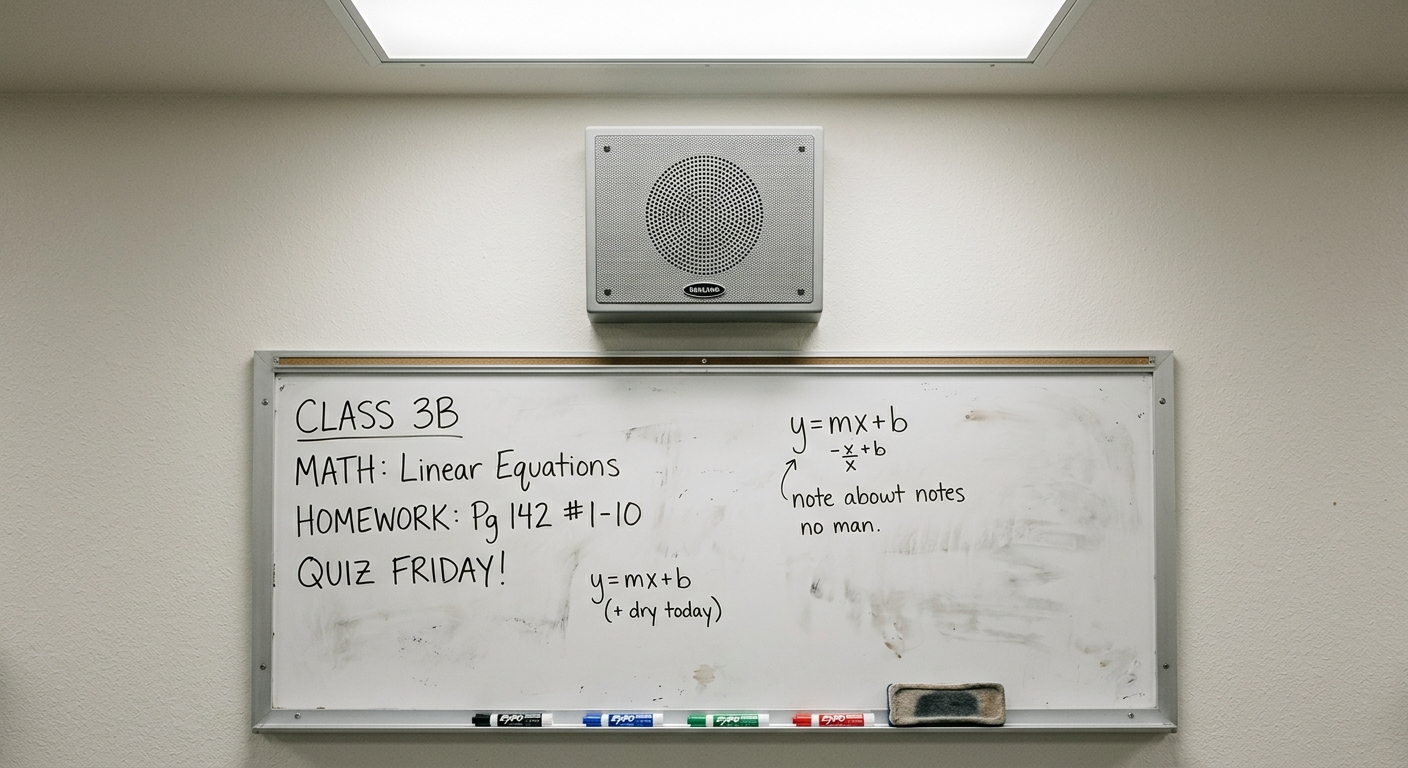 CLASS 3B
MATH: Linear Equations
HOMEWORK: Pg 142 #1-10
QUIZ FRIDAY!
y=mx+b
(+ dry today)
y=mx+b
-x/x+b
note about notes
no man.
EXPO
EXPO
EXPO
EXPO